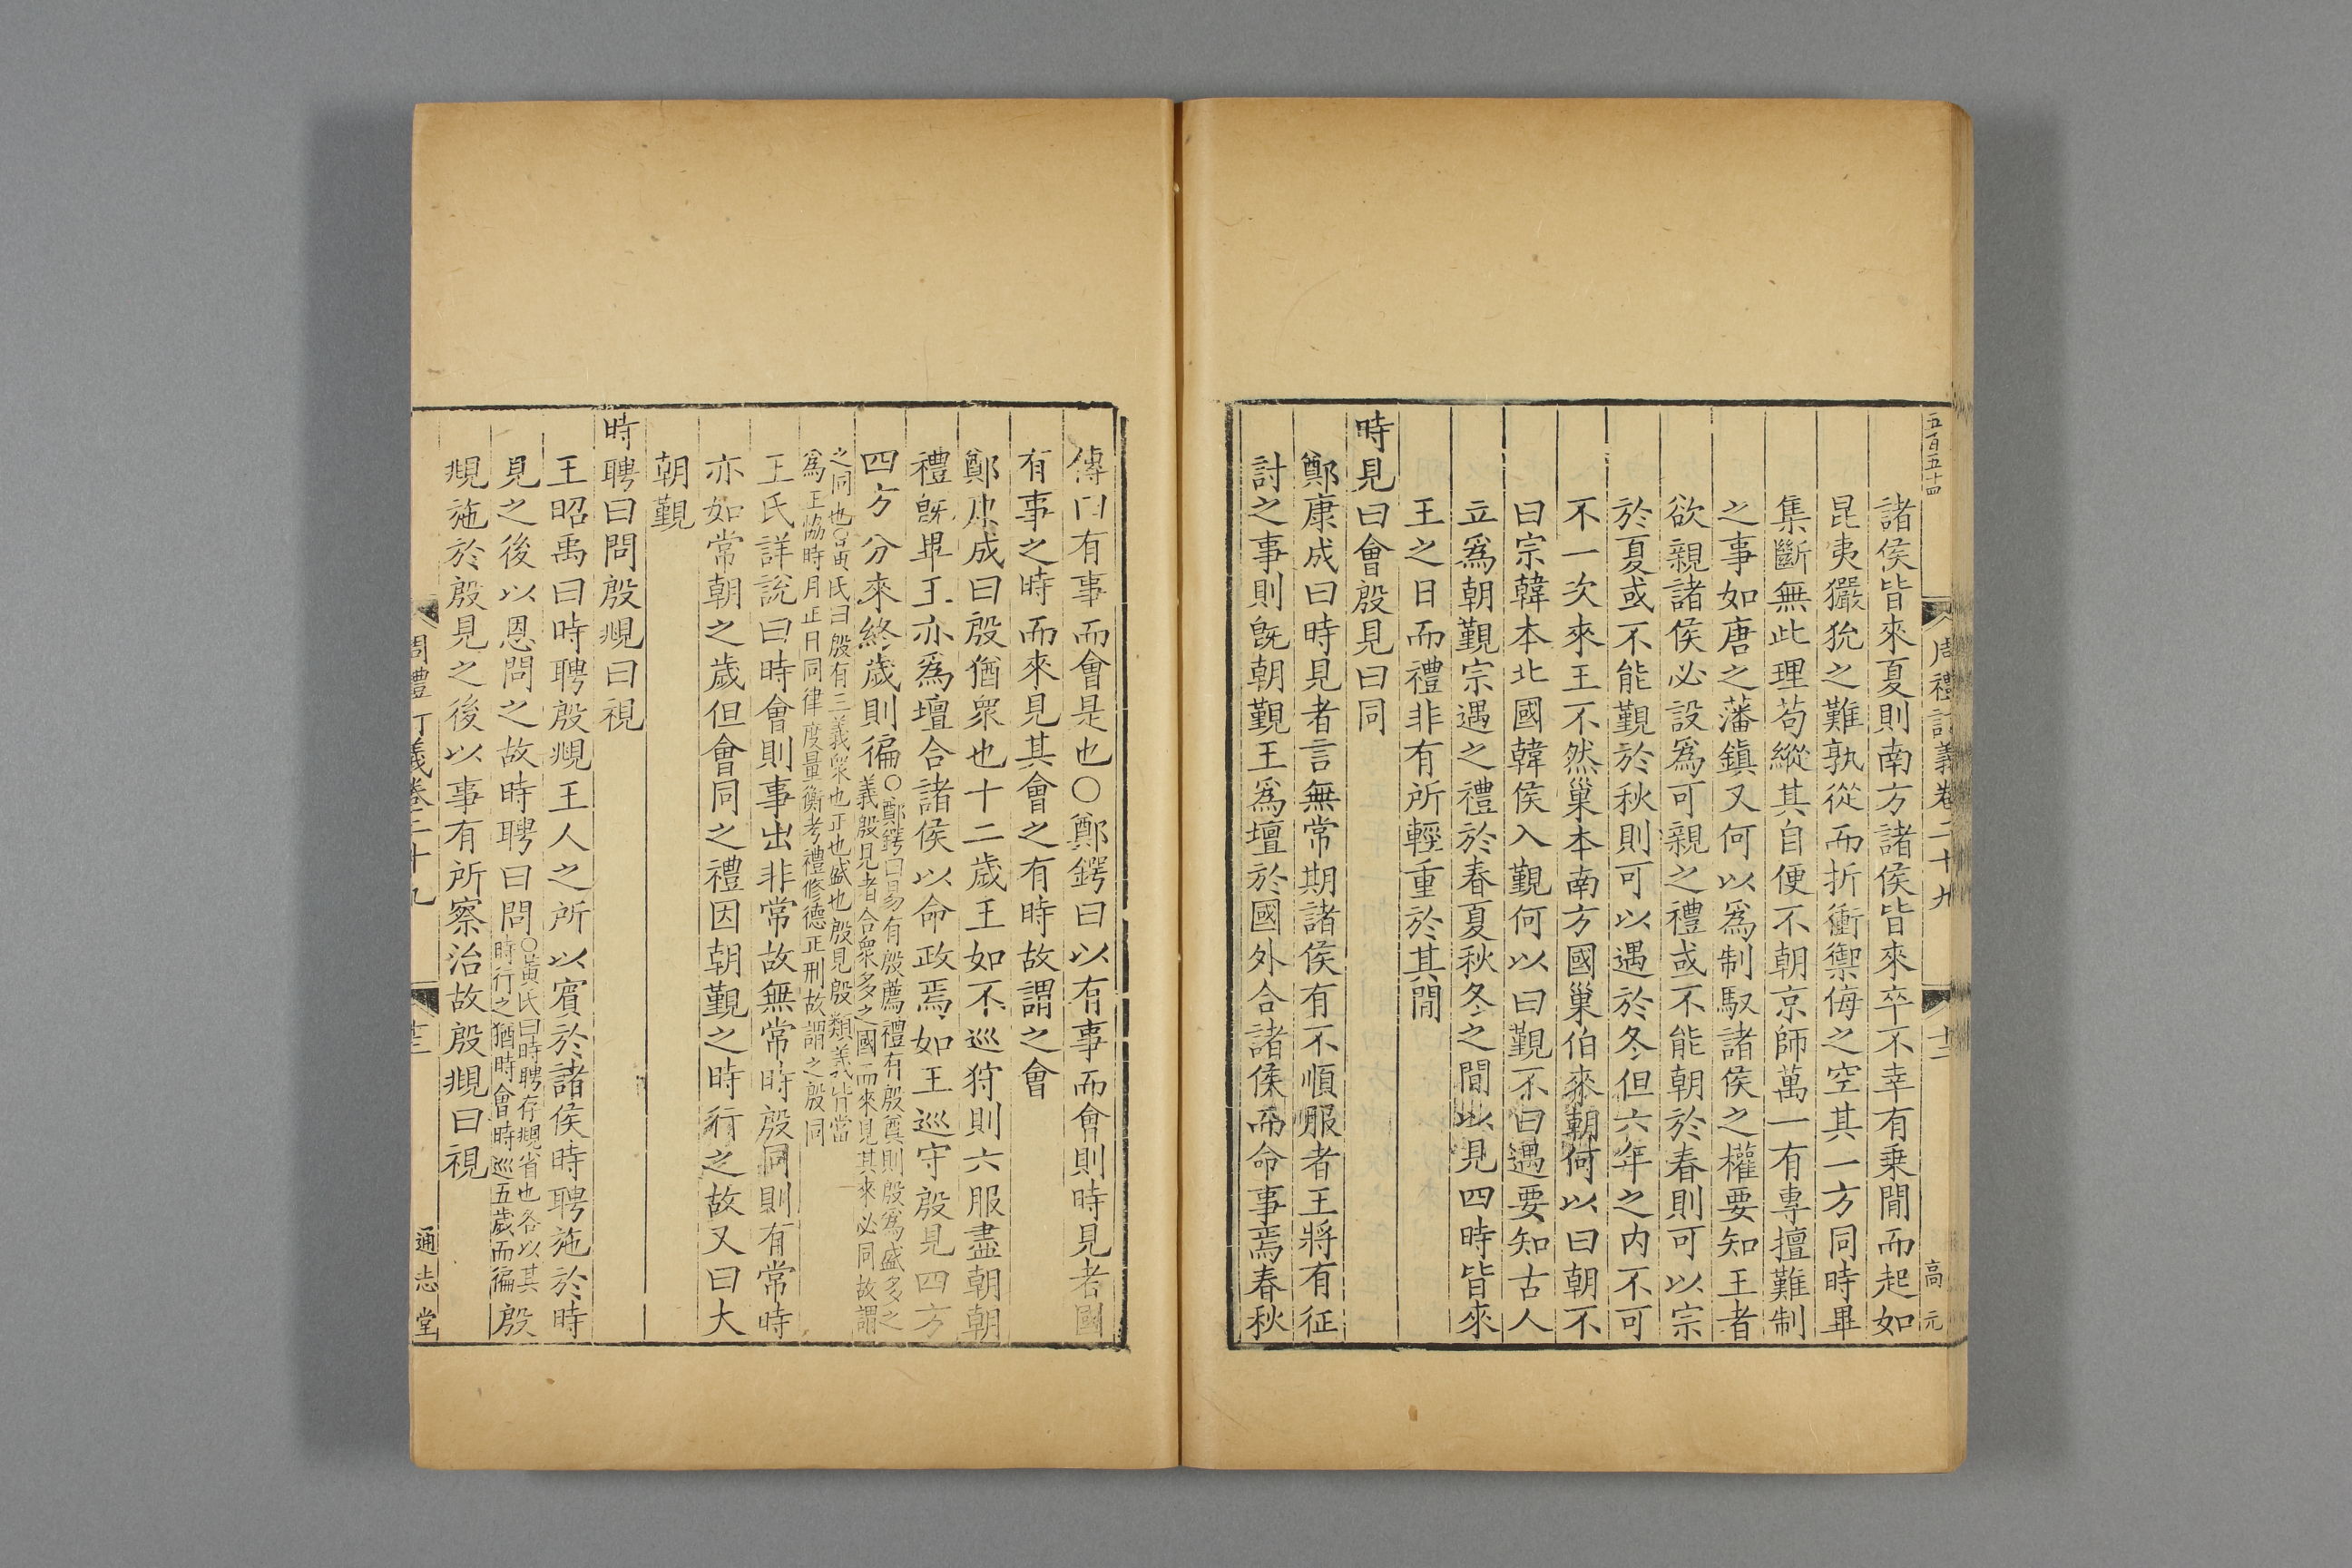 五百五十四
周禮訂義卷二十九
十二
高元
諸侯皆來夏則南方諸侯皆來卒不幸有乗閒而起如
昆夷玁狁之難孰從而折衝禦侮之空其一方同時畢
集斷無此理苟縱其自便不朝京師萬一有專擅難制
之事如唐之藩鎮又何以爲制馭諸侯之權要知王者
欲親諸侯必設爲可親之禮或不能朝於春則可以宗
於夏或不能覲於秋則可以遇於冬但六年之内不可
不一次來王不然巢本南方國巢伯來朝何以曰朝不
曰宗韓本北國韓侯入覲何以曰覲不曰遇要知古人
立爲朝覲宗遇之禮於春夏秋冬之閒以見四時皆來
王之日而禮非有所輕重於其閒
時見曰會殷見曰同
鄭康成曰時見者言無常期諸侯有不順服者王將有征
討之事則旣朝覲王爲壇於國外合諸侯而命事焉春秋
傳曰有事而會是也○鄭鍔曰以有事而會則時見者國
有事之時而來見其會之有時故謂之會
鄭康成曰殷猶衆也十二歲王如不巡狩則六服盡朝朝
禮旣畢王亦爲壇合諸侯以命政焉如王巡守殷見四方
四方分來終歲則徧○鄭鍔曰易有殷薦禮有殷奠則殷爲盛多之
義殷見者合衆多之國而來見其來必同故謂
之同也○黃氏曰殷有三義衆也正也盛也殷見殷類義皆當
爲王恊時月正日同律度量衡考禮修德正刑故謂之殷同
王氏詳說曰時會則事出非常故無常時殷同則有常時
亦如常朝之歲但會同之禮因朝覲之時行之故又曰大
朝覲
時聘曰問殷覜曰視
王昭禹曰時聘殷覜王人之所以賓於諸侯時聘施於時
見之後以恩問之故時聘曰問○黃氏曰時聘存覜省也各以其
時行之猶時會時巡五歲而徧殷
覜施於殷見之後以事有所察治故殷覜曰視
周禮訂義卷二十九
通志堂